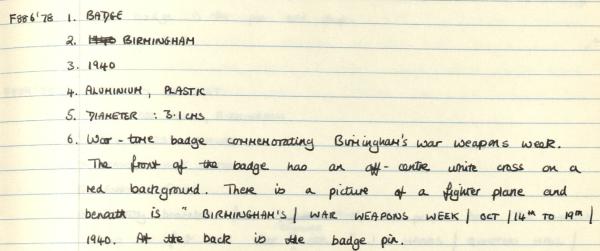 F886'78 1. BADGE
2. 1940 BIRMINGHAM
3. 1940
4. ALUMINIUM, PLASTIC
5. DIAMETER : 3.1 CMS
6. War-time badge commemorating Birmingham's war weapons week.
The front of the badge has an off-centre white cross on a
red background. There is a picture of a fighter plane and
beneath is " BIRMINGHAM'S | WAR WEAPONS WEEK | OCT | 14TH TO 19TH |
1940. At the back is the badge pin.